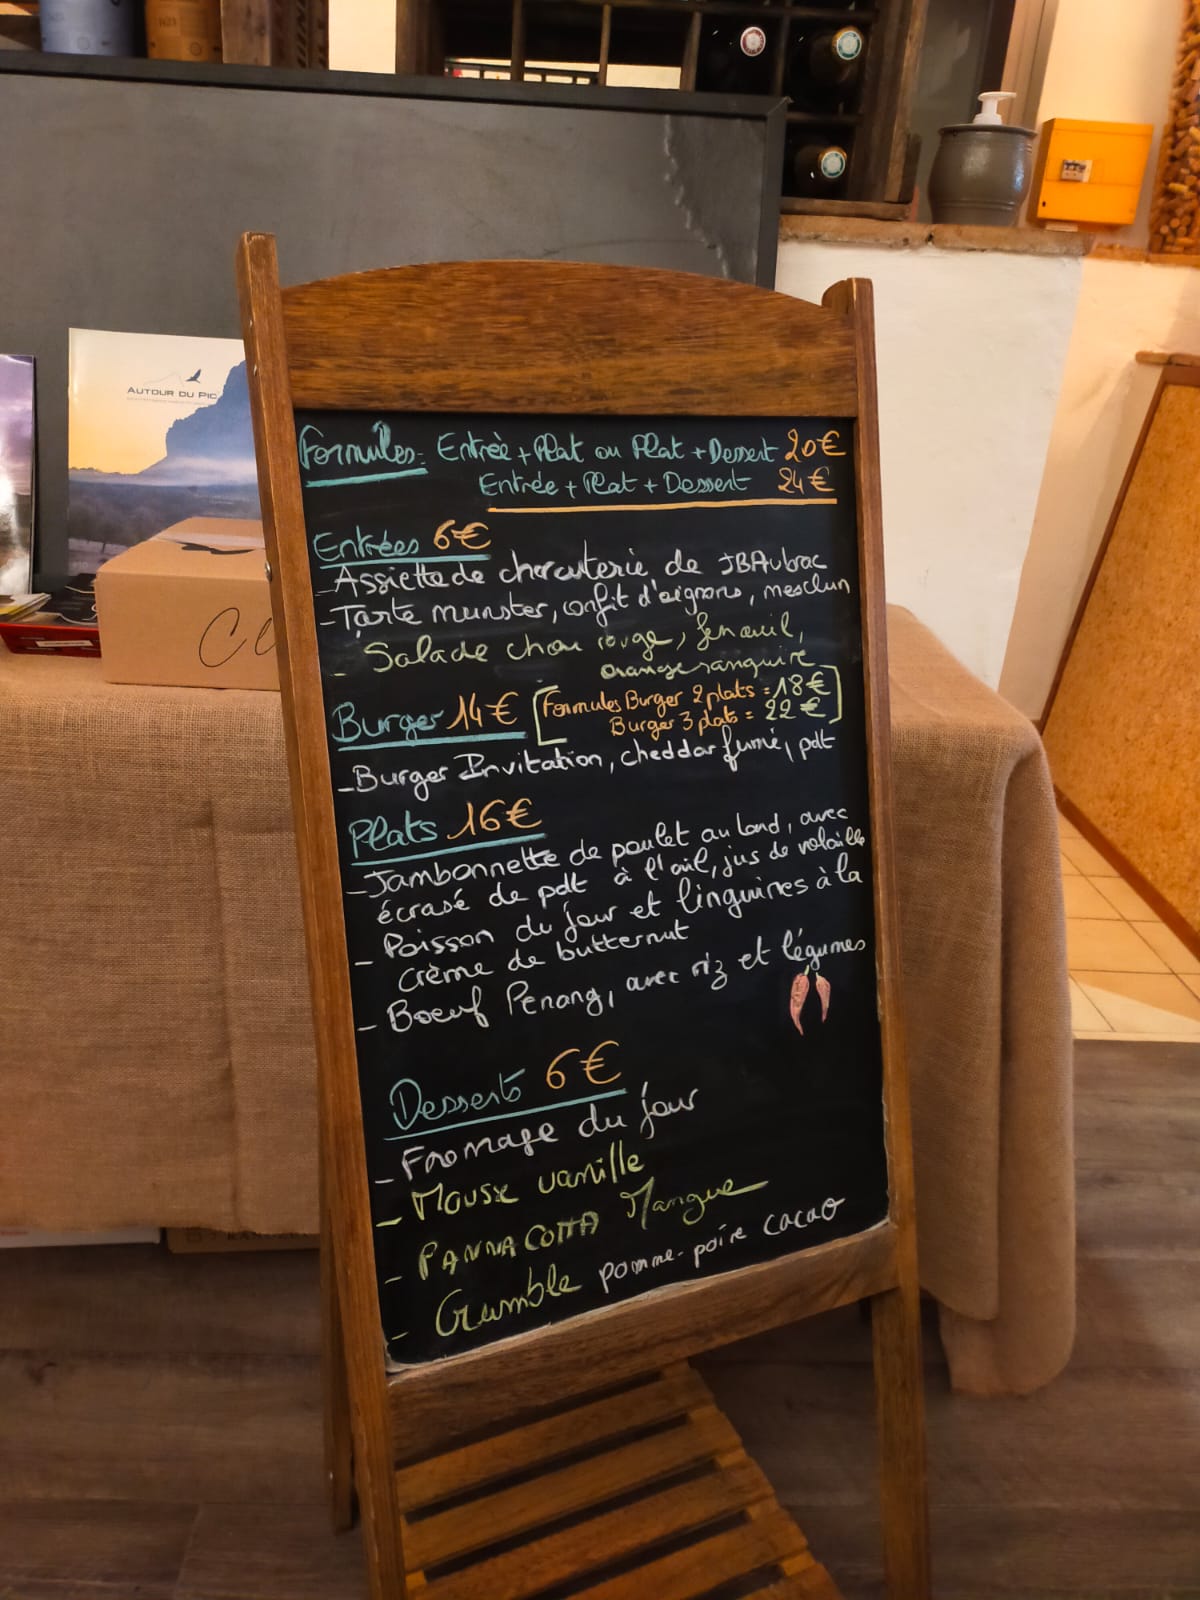 AUTOUR DU PIC
Formules: Entrée + Plat ou Plat + Dessert 20€
Entrée + Plat + Dessert 24€
Entrées 6€
- Assiette de charcuterie de JBAubrac
- Tarte munster, confit d'oignons, mesclun
- Salade chou rouge, fenouil,
orange sanguine
Burger 14€ [Formules Burger 2 plats = 18€
Burger 3 plats = 22€]
- Burger Invitation, cheddar fumé, pdt
Plats 16€
- Jambonnette de poulet au lard, avec
écrasé de pdt à l'ail, jus de volaille
- Poisson du jour et linguines à la
crème de butternut
- Boeuf Penang, avec riz et légumes
Desserts 6€
- Fromage du jour
- Mousse vanille
- PANNA COTTA Mangue
- Crumble pomme-poire cacao